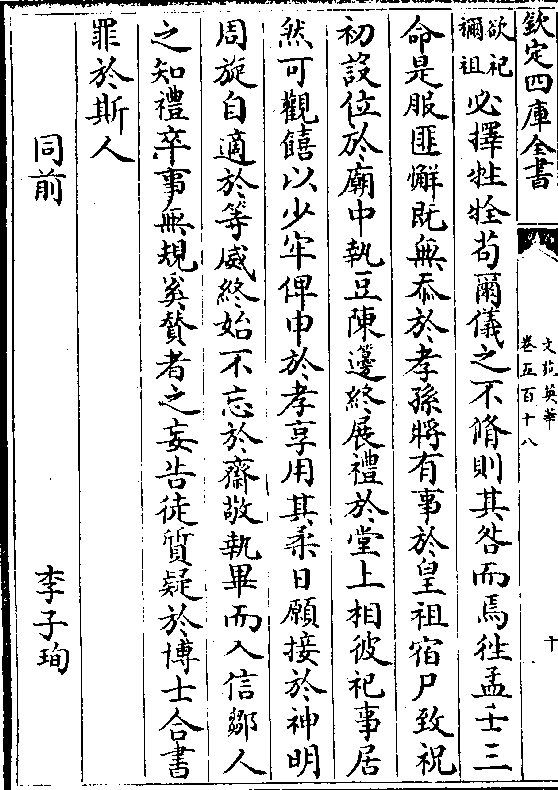 欽定四庫全書
文苑英華
卷五百十八
十
欲祀
禰祖
必擇牲牷苟爾儀之不脩則其咎而焉徃孟壬三
命是服匪懈既無忝於孝孫將有事於皇祖宿尸致祝
初設位於廟中執豆陳籩終展禮於堂上相彼祀事居
然可觀饎以少牢俾申於孝享用其柔日願接於神明
周旋自適於等威終始不忘於齋敬執畢而入信鄒人
之知禮卒事無規奚贊者之妄告徒質疑於博士合書
罪於斯人
同前
李子珣